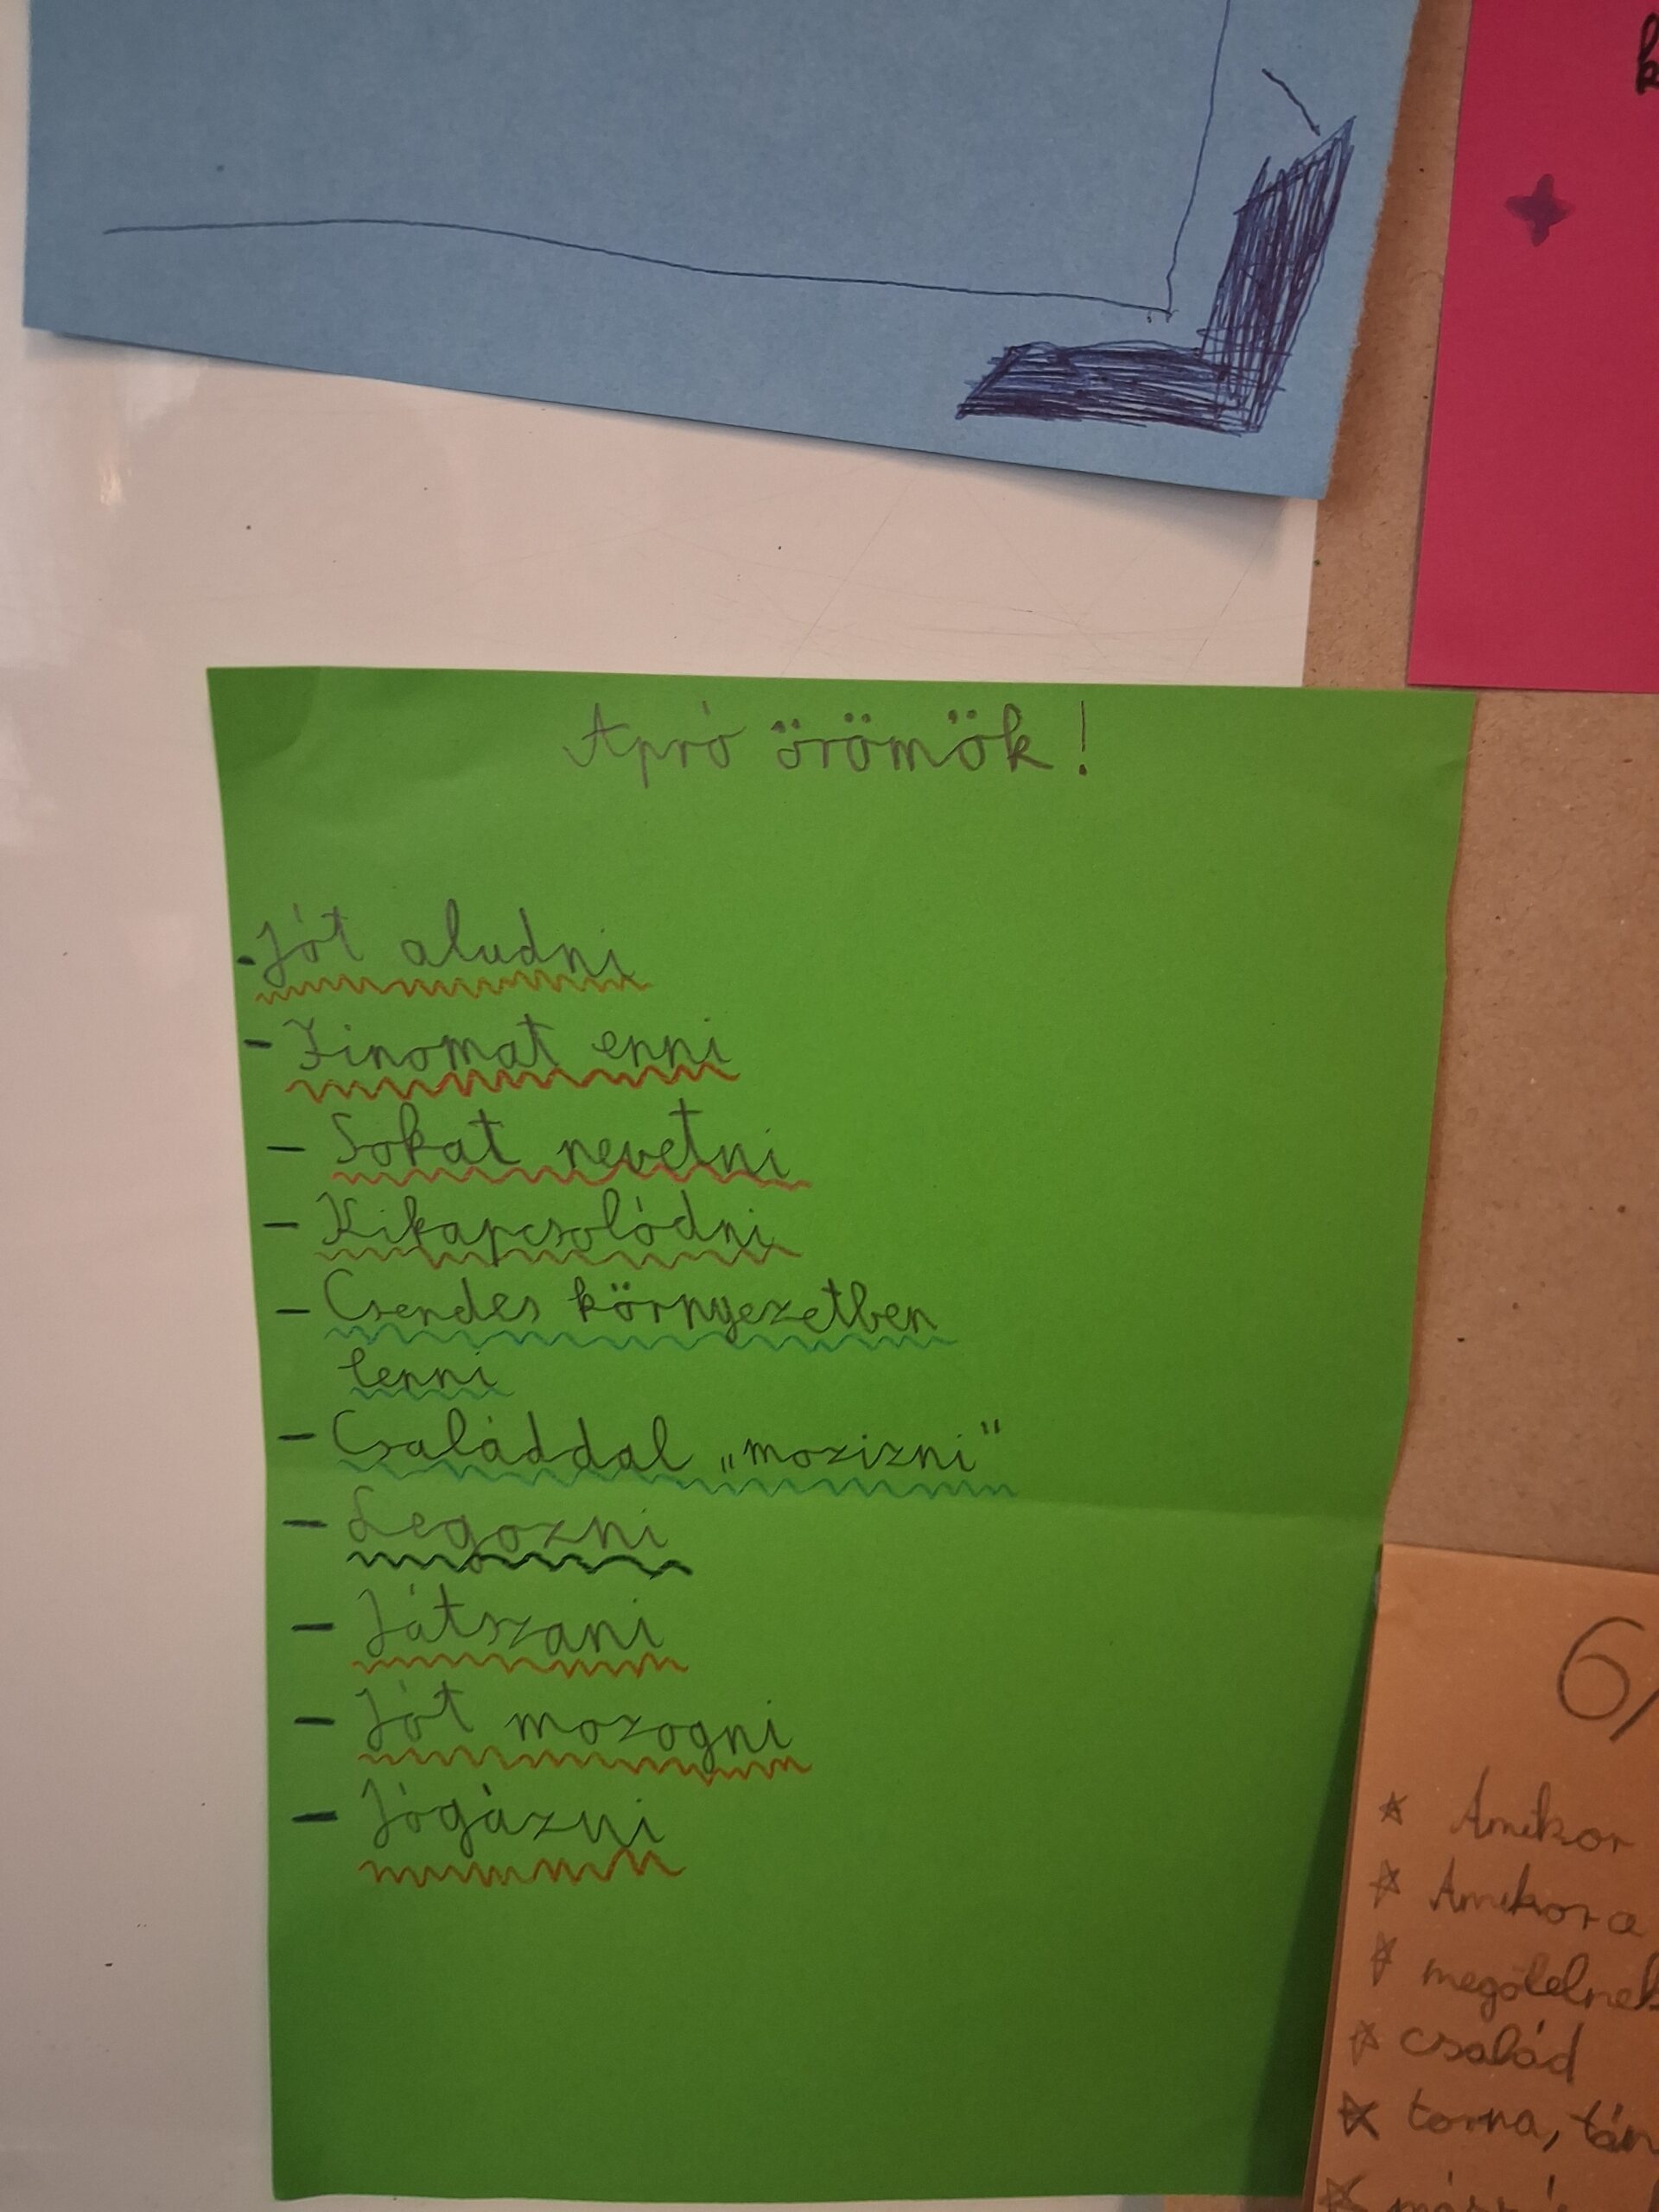 Apró örömök!
- Jót aludni
- Finomat enni
- Sokat nevetni
- Kikapcsolódni
- Csendes környezetben
lenni
- Családdal „mozizni"
- Legozni
- Játszani
- Jót mozogni
- Jógázni
6/
Amikor
Amikor a
megölelnek
család
torna,